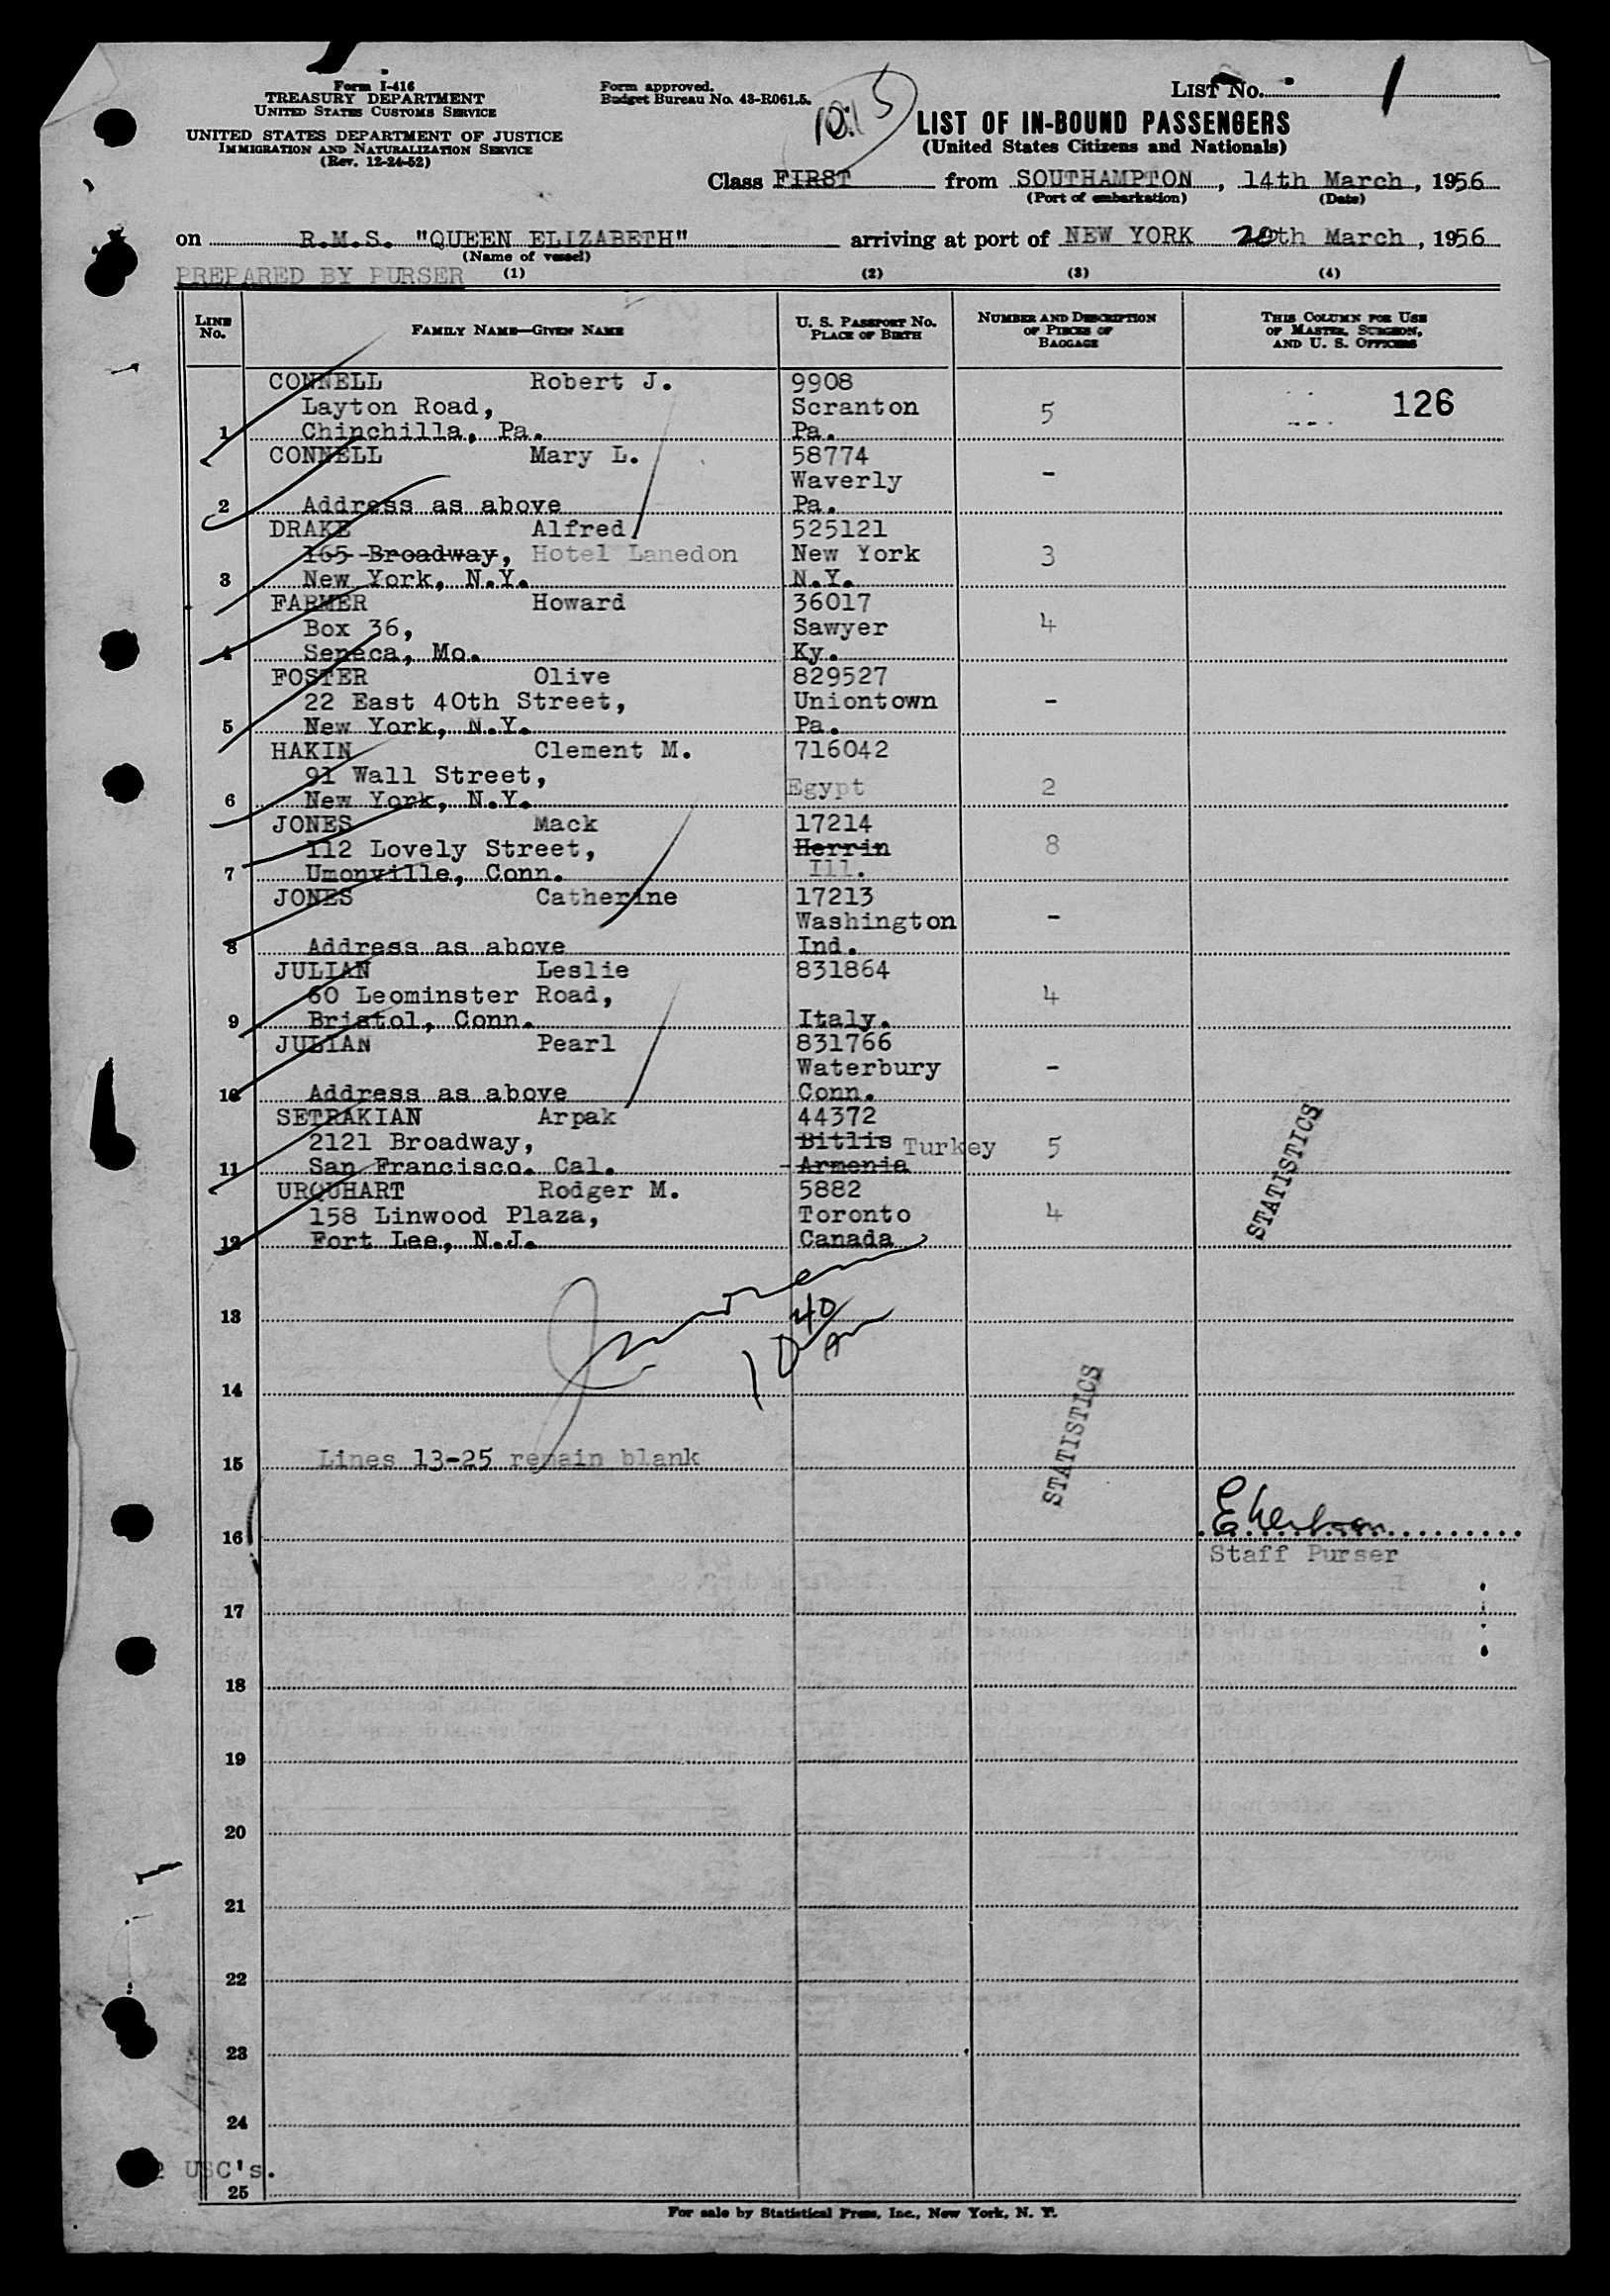 Form I-416
TREASURY DEPARTMENT
UNITED STATES CUSTOMS SERVICE
UNITED STATES DEPARTMENT OF JUSTICE
IMMIGRATION AND NATURALIZATION SERVICE
(Rev. 12-24-52)
Form approved.
Budget Bureau No. 43-R061.5.
LIST No. 1
LIST OF IN-BOUND PASSENGERS
(United States Citizens and Nationals)
Class FIRST from SOUTHAMPTON, 14th March, 1956
(Port of embarkation) (Date)
on R.M.S. "QUEEN ELIZABETH" arriving at port of NEW YORK 20th March, 1956
(Name of vessel)
PREPARED BY PURSER (1) (2) (3) (4)
LINE No. FAMILY NAME—GIVEN NAME U. S. PASSPORT No. PLACE OF BIRTH NUMBER AND DESCRIPTION OF PIECES OF BAGGAGE THIS COLUMN FOR USE OF MASTER, SURGEON, AND U. S. OFFICERS
CONNELL Robert J. 9908
Layton Road, Scranton 5 126
1 Chinchilla, Pa. Pa.
CONNELL Mary L. 58774
Waverly -
2 Address as above Pa.
DRAKE Alfred 525121
165 Broadway, Hotel Lanedon New York 3
3 New York, N.Y. N.Y.
FARMER Howard 36017
Box 36, Sawyer 4
4 Seneca, Mo. Ky.
FOSTER Olive 829527
22 East 40th Street, Uniontown -
5 New York, N.Y. Pa.
HAKIN Clement M. 716042
91 Wall Street, Egypt 2
6 New York, N.Y.
JONES Mack 17214
112 Lovely Street, Herrin 8
7 Umonville, Conn. Ill.
JONES Catherine 17213
Washington -
8 Address as above Ind.
JULIAN Leslie 831864
60 Leominster Road, 4
9 Bristol, Conn. Italy.
JULIAN Pearl 831766
Waterbury -
10 Address as above Conn.
SETRAKIAN Arpak 44372
2121 Broadway, Bitlis Turkey 5
11 San Francisco. Cal. Armenia
URQUHART Rodger M. 5882
158 Linwood Plaza, Toronto 4
12 Fort Lee, N.J. Canada
STATISTICS
13
10 40 A
14
STATISTICS
15 Lines 13-25 remain blank
16
Staff Purser
17
18
19
20
21
22
23
24
2 USC's.
25
For sale by Statistical Press, Inc., New York, N. Y.